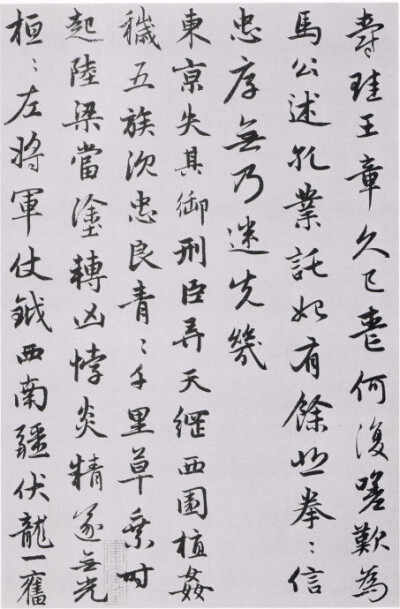 爵珪王章久已喪何復嗟歎為
馬公述孔業託始有餘悲拳〻信
忠厚無乃迷先幾
東京失其御刑臣弄天綱西園植姦
穢五族沉忠良青〻千里草乘时
起陸梁當塗轉凶悖炎精遂无光
桓〻左將軍仗鉞西南疆伏龍一奮